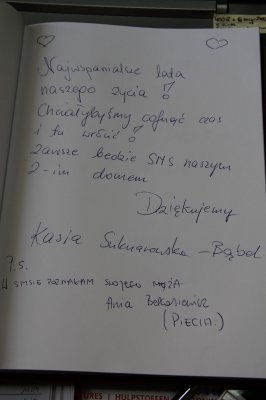 Najwspanialsze lata
naszego życia!
Chciałybyśmy cofnąć czas
i tu wrócić!
Zawsze będzie SMS naszym
2-im domem
Dziękujemy
Kasia Suknarowska-Bąbel
P.S.
W SMSIE POZNAŁAM SWOJEGO MĘŻA
Ania
(PIECIA.)
HULPSTOFFEN